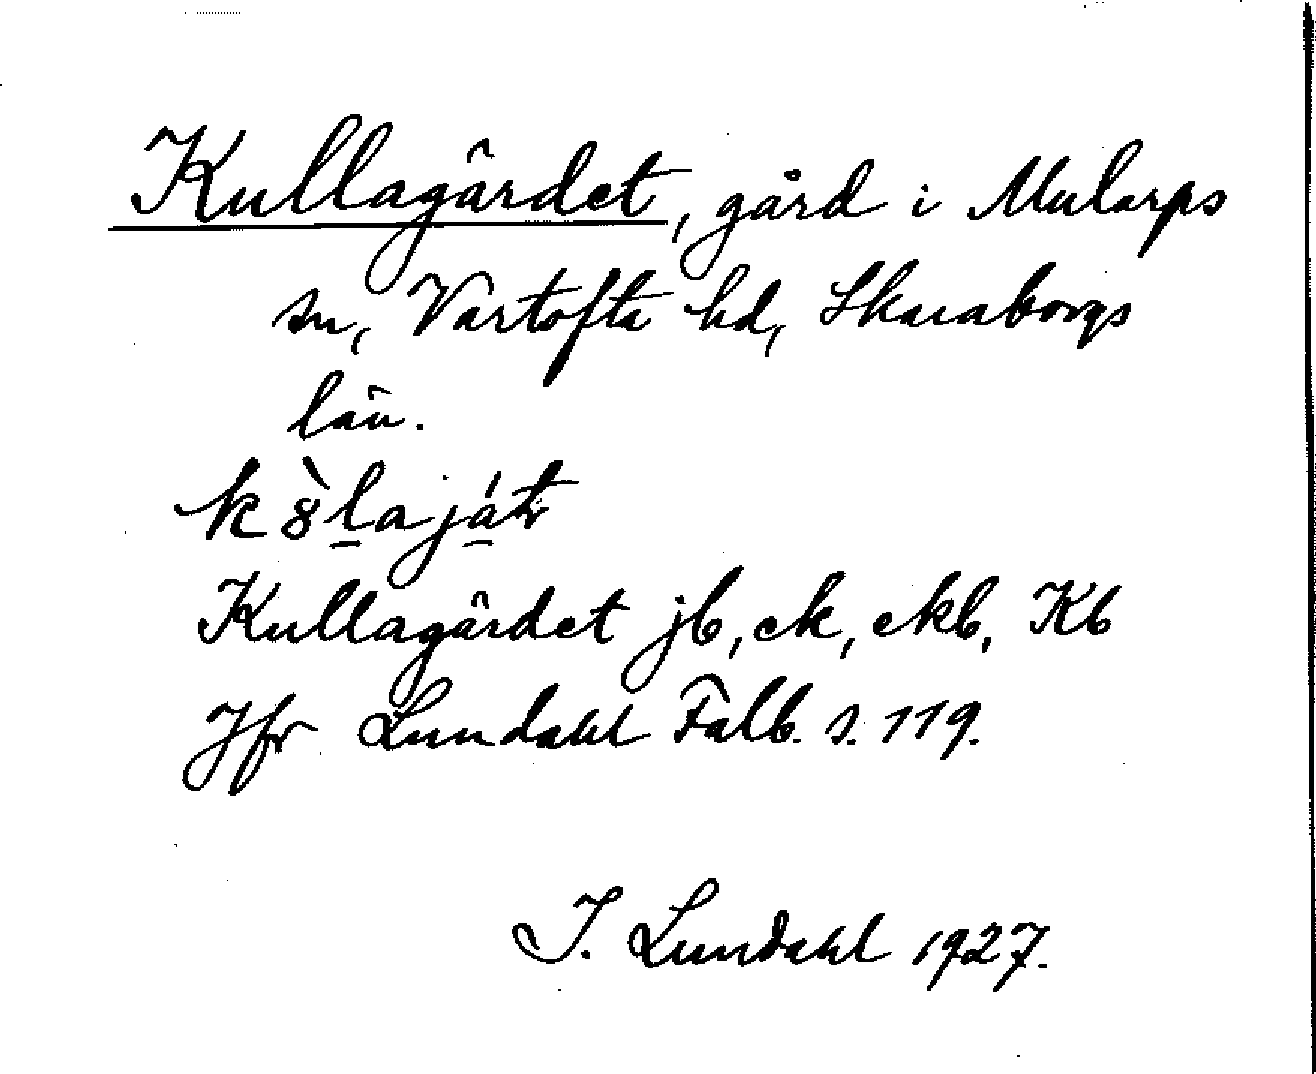 Kullagärdet, gård i Mularps
sn, Vartofta hd, Skaraborgs
län.
k8̀laját
Kullagärdet jb, ek, ekb, Kb
Jfr Lundahl Falb. s. 119.
I. Lundahl 1927.